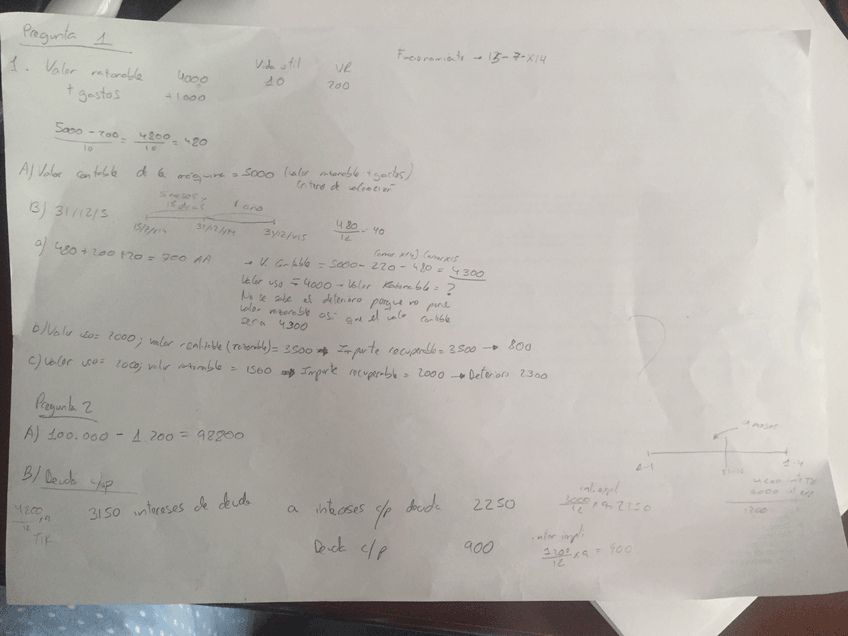 Pregunta 1
1. Valor razonable 4000 Vida útil VR Funcionamiento → 15-7-X14
+ gastos +1000 10 200
5000 - 200 / 10 = 4800 / 10 = 480
A) Valor contable de la máquina = 5000 (valor razonable + gastos)
criterio de valoración
B) 31/12/15
5 meses y 15 días 1 año
15/7/x14 31/12/x14 31/12/x15
480 / 12 = 40
a) 480 + 200 + 20 = 700 AA
→ V. Contable = 5000 - 220 - 480 = 4300
Valor uso = 4000 → Valor Razonable = ?
No se sabe el deterioro porque no pone
valor razonable así que el valor contable
será 4300
b) Valor uso = 2000; valor realizable (razonable) = 3500 ⇒ Importe recuperable = 3500 → 800
c) Valor uso = 2000; valor razonable = 1500 ⇒ Importe recuperable = 2000 → Deterioro 2300
Pregunta 2
A) 100.000 - 1200 = 98800
B) Deuda c/p
4200 / 12 x 9
TIR
3150 intereses de deuda a intereses c/p deuda 2250
3000 / 12 x 9 = 2250
Deuda c/p 900
1200 / 12 x 9 = 900
9 meses